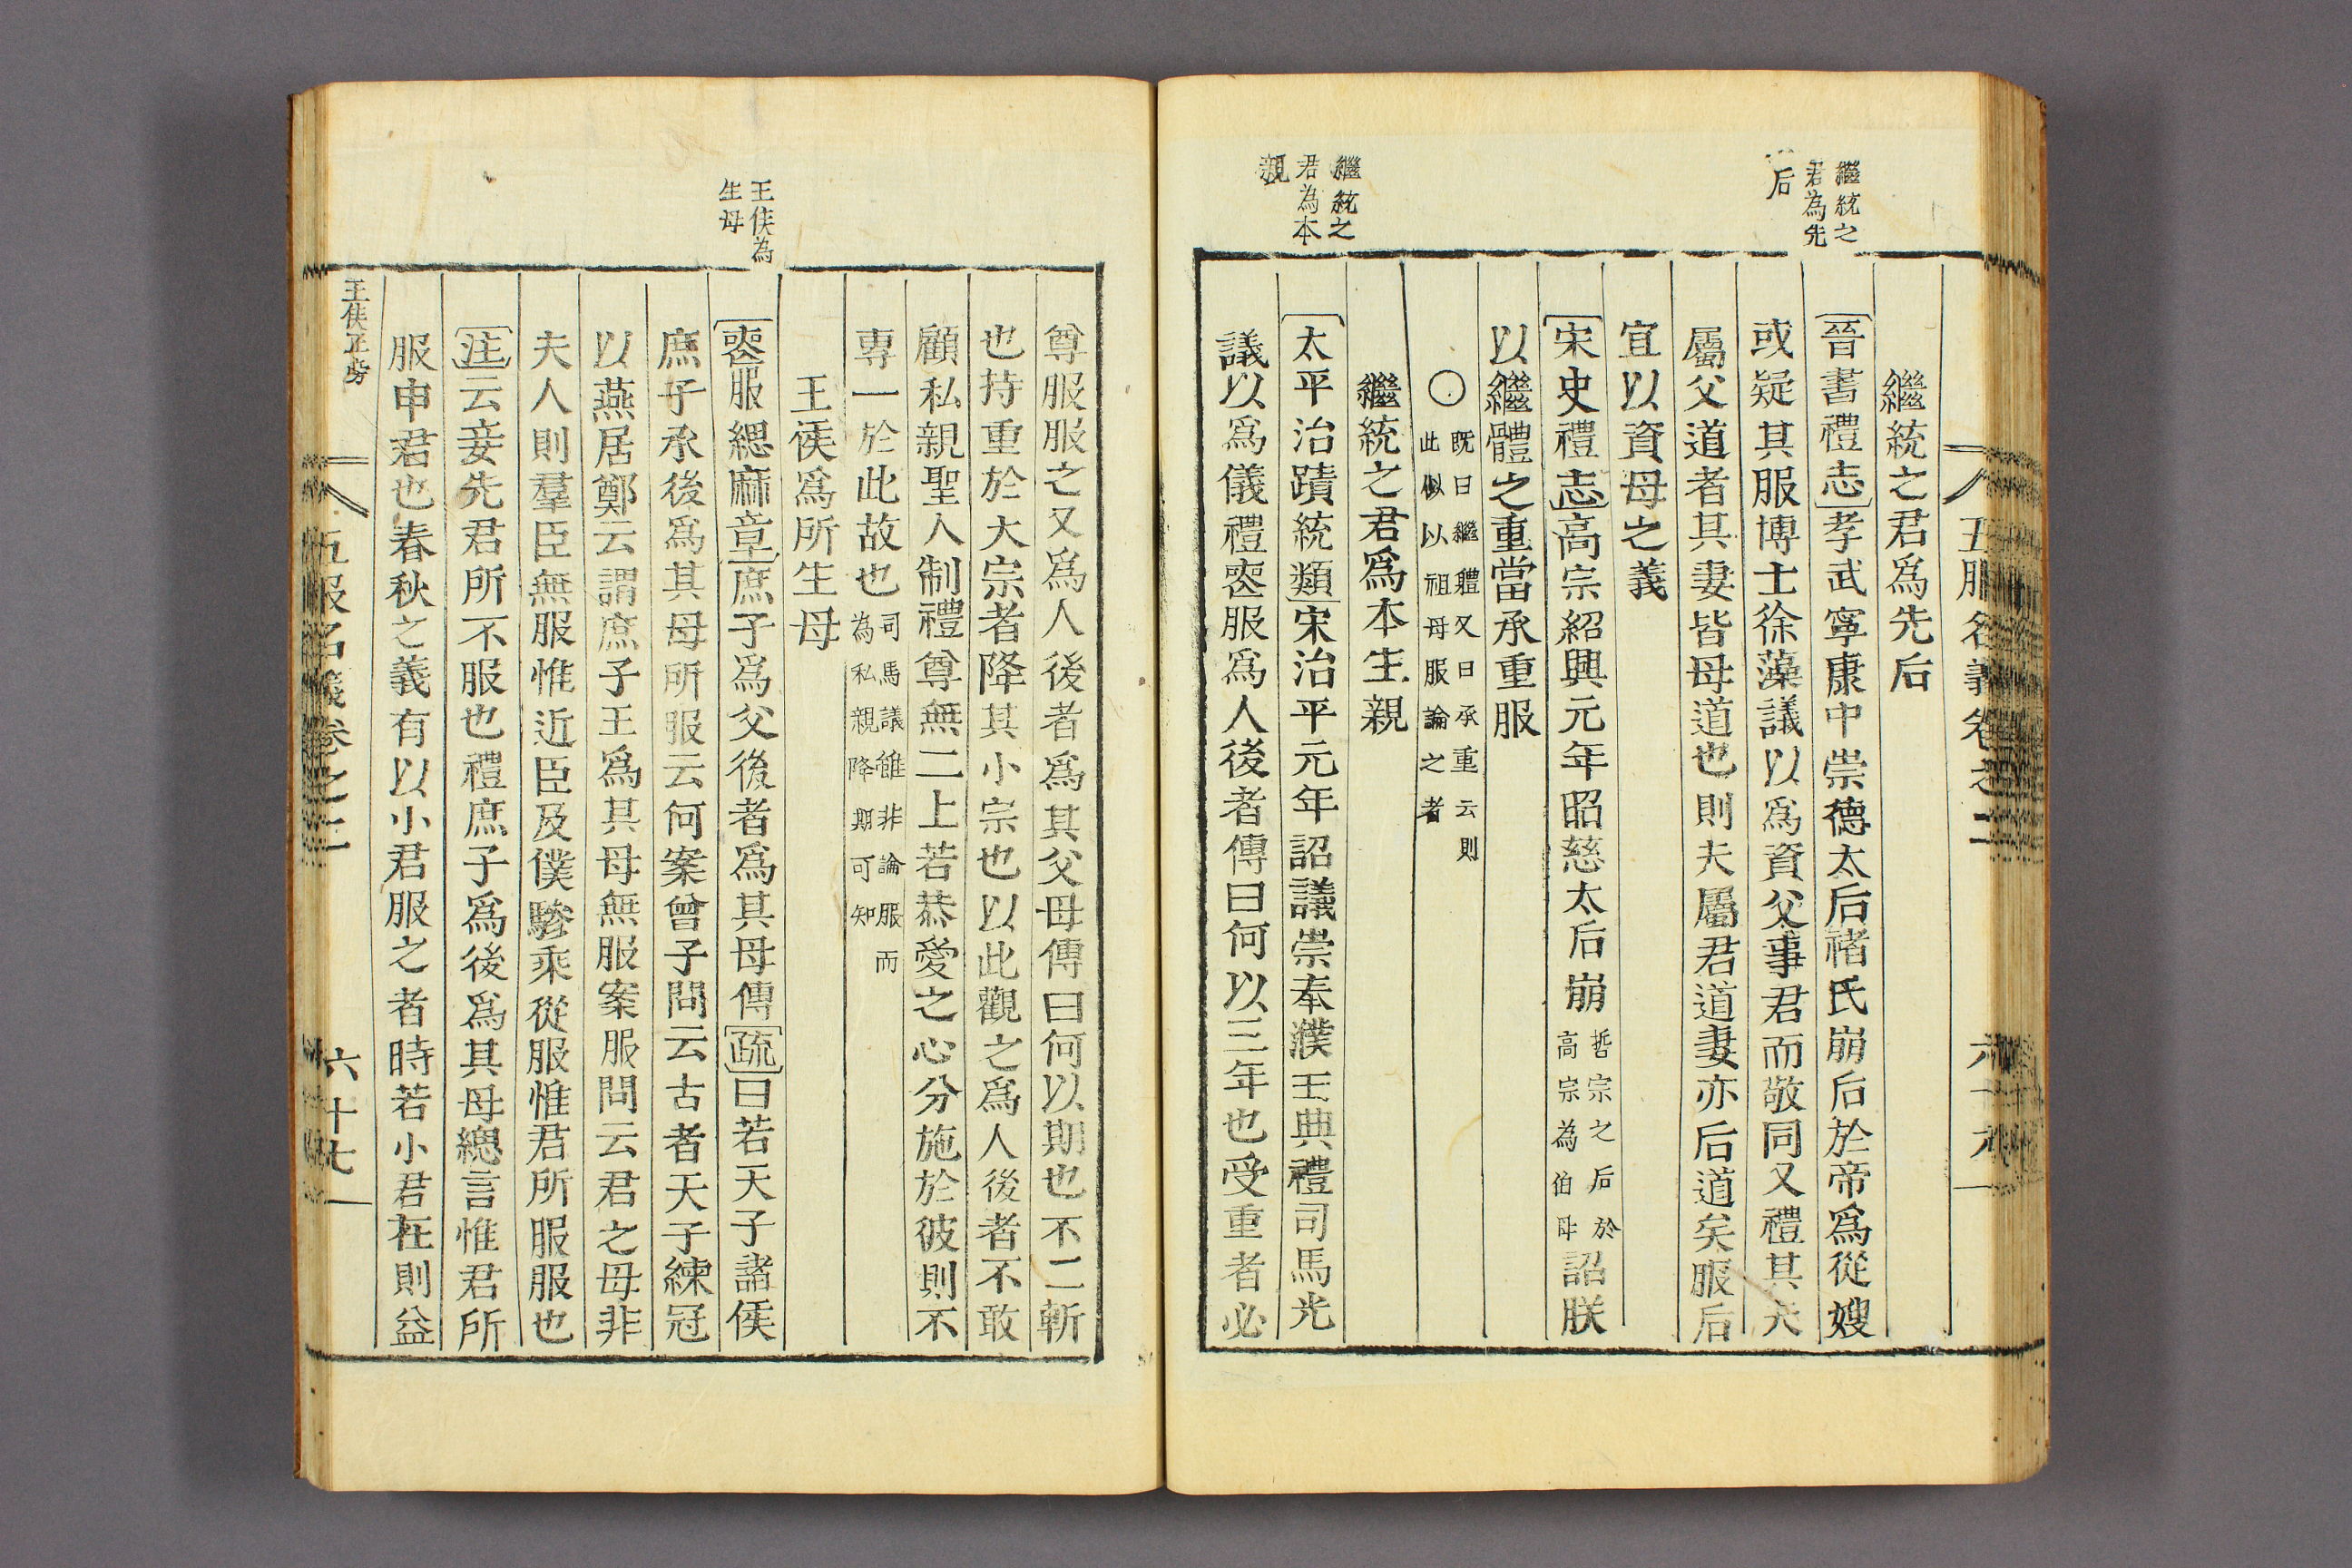 繼統之
君為先
后
五服名義卷之二
六十六
繼統之君爲先后
晉書禮志孝武寧康中崇德太后褚氏崩后於帝爲從嫂
或疑其服博士徐藻議以爲資父事君而敬同又禮其夫
屬父道者其妻皆母道也則夫屬君道妻亦后道矣服后
宜以資母之義
宋史禮志高宗紹興元年昭慈太后崩
哲宗之后於
高宗為伯母
詔朕
以繼體之重當承重服
○
既曰繼軆又曰承重云則
此似以祖母服論之者
繼統之
君為本
親
繼統之君爲本生親
太平治蹟統類宋治平元年詔議崇奉濮王典禮司馬光
議以爲儀禮䘮服爲人後者傳曰何以三年也受重者必
尊服服之又爲人後者爲其父母傳曰何以期也不二斬
也持重於大宗者降其小宗也以此觀之爲人後者不敢
顧私親聖人制禮尊無二上若恭愛之心分施於彼則不
専一於此故也
司馬議雖非論服而
為私親降期可知
王侯為
生母
王侯爲所生母
䘮服緦麻章庶子爲父後者爲其母傳疏曰若天子諸侯
庶子承後爲其母所服云何案曾子問云古者天子練冠
以燕居鄭云謂庶子王爲其母無服案服問云君之母非
夫人則羣臣無服惟近臣及僕驂乘從服惟君所服服也
注云妾先君所不服也禮庶子爲後爲其母緦言惟君所
服申君也春秋之義有以小君服之者時若小君在則益
王侯正旁
五服名義卷之二
六十七